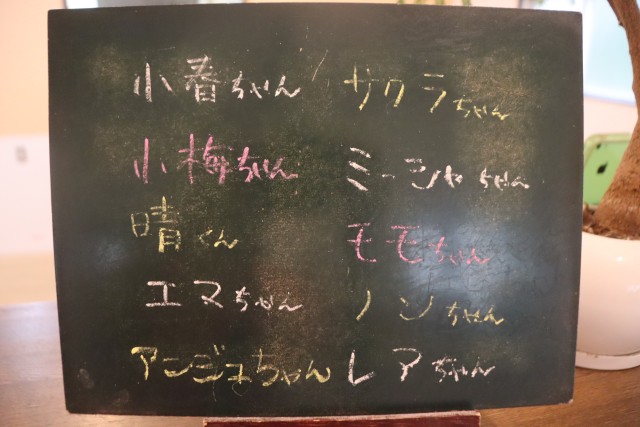 小春ちゃん
小梅ちゃん
晴くん
エマちゃん
アンジュちゃん
サクラちゃん
ミーシャちゃん
モモちゃん
ノンちゃん
レアちゃん